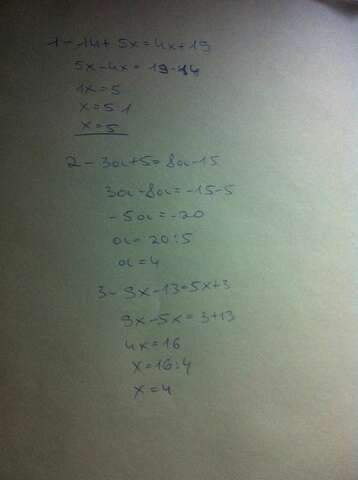 1- 14+5x=4x+19
5x-4x= 19-14
1x=5
x=5:1
x=5
2- 3a+5=8a-15
3a-8a=-15-5
-5a=-20
a=20:5
a=4
3- 9x-13=5x+3
9x-5x=3+13
4x=16
x=16:4
x=4